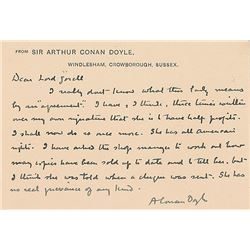 FROM SIR ARTHUR CONAN DOYLE,
WINDLESHAM, CROWBOROUGH, SUSSEX.
Dear Lord Gorell
I really don't know what this lady means
by an "agreement". I have, I think, three times written
over my own signature that she is to have half profits.
I shall now do so once more. She has all American
rights. I have asked the shop manager to work out how
many copies have been sold up to date and to tell her, but
I think she was told when a cheque was sent. She has
no real grievance of any kind.
A Conan Doyle